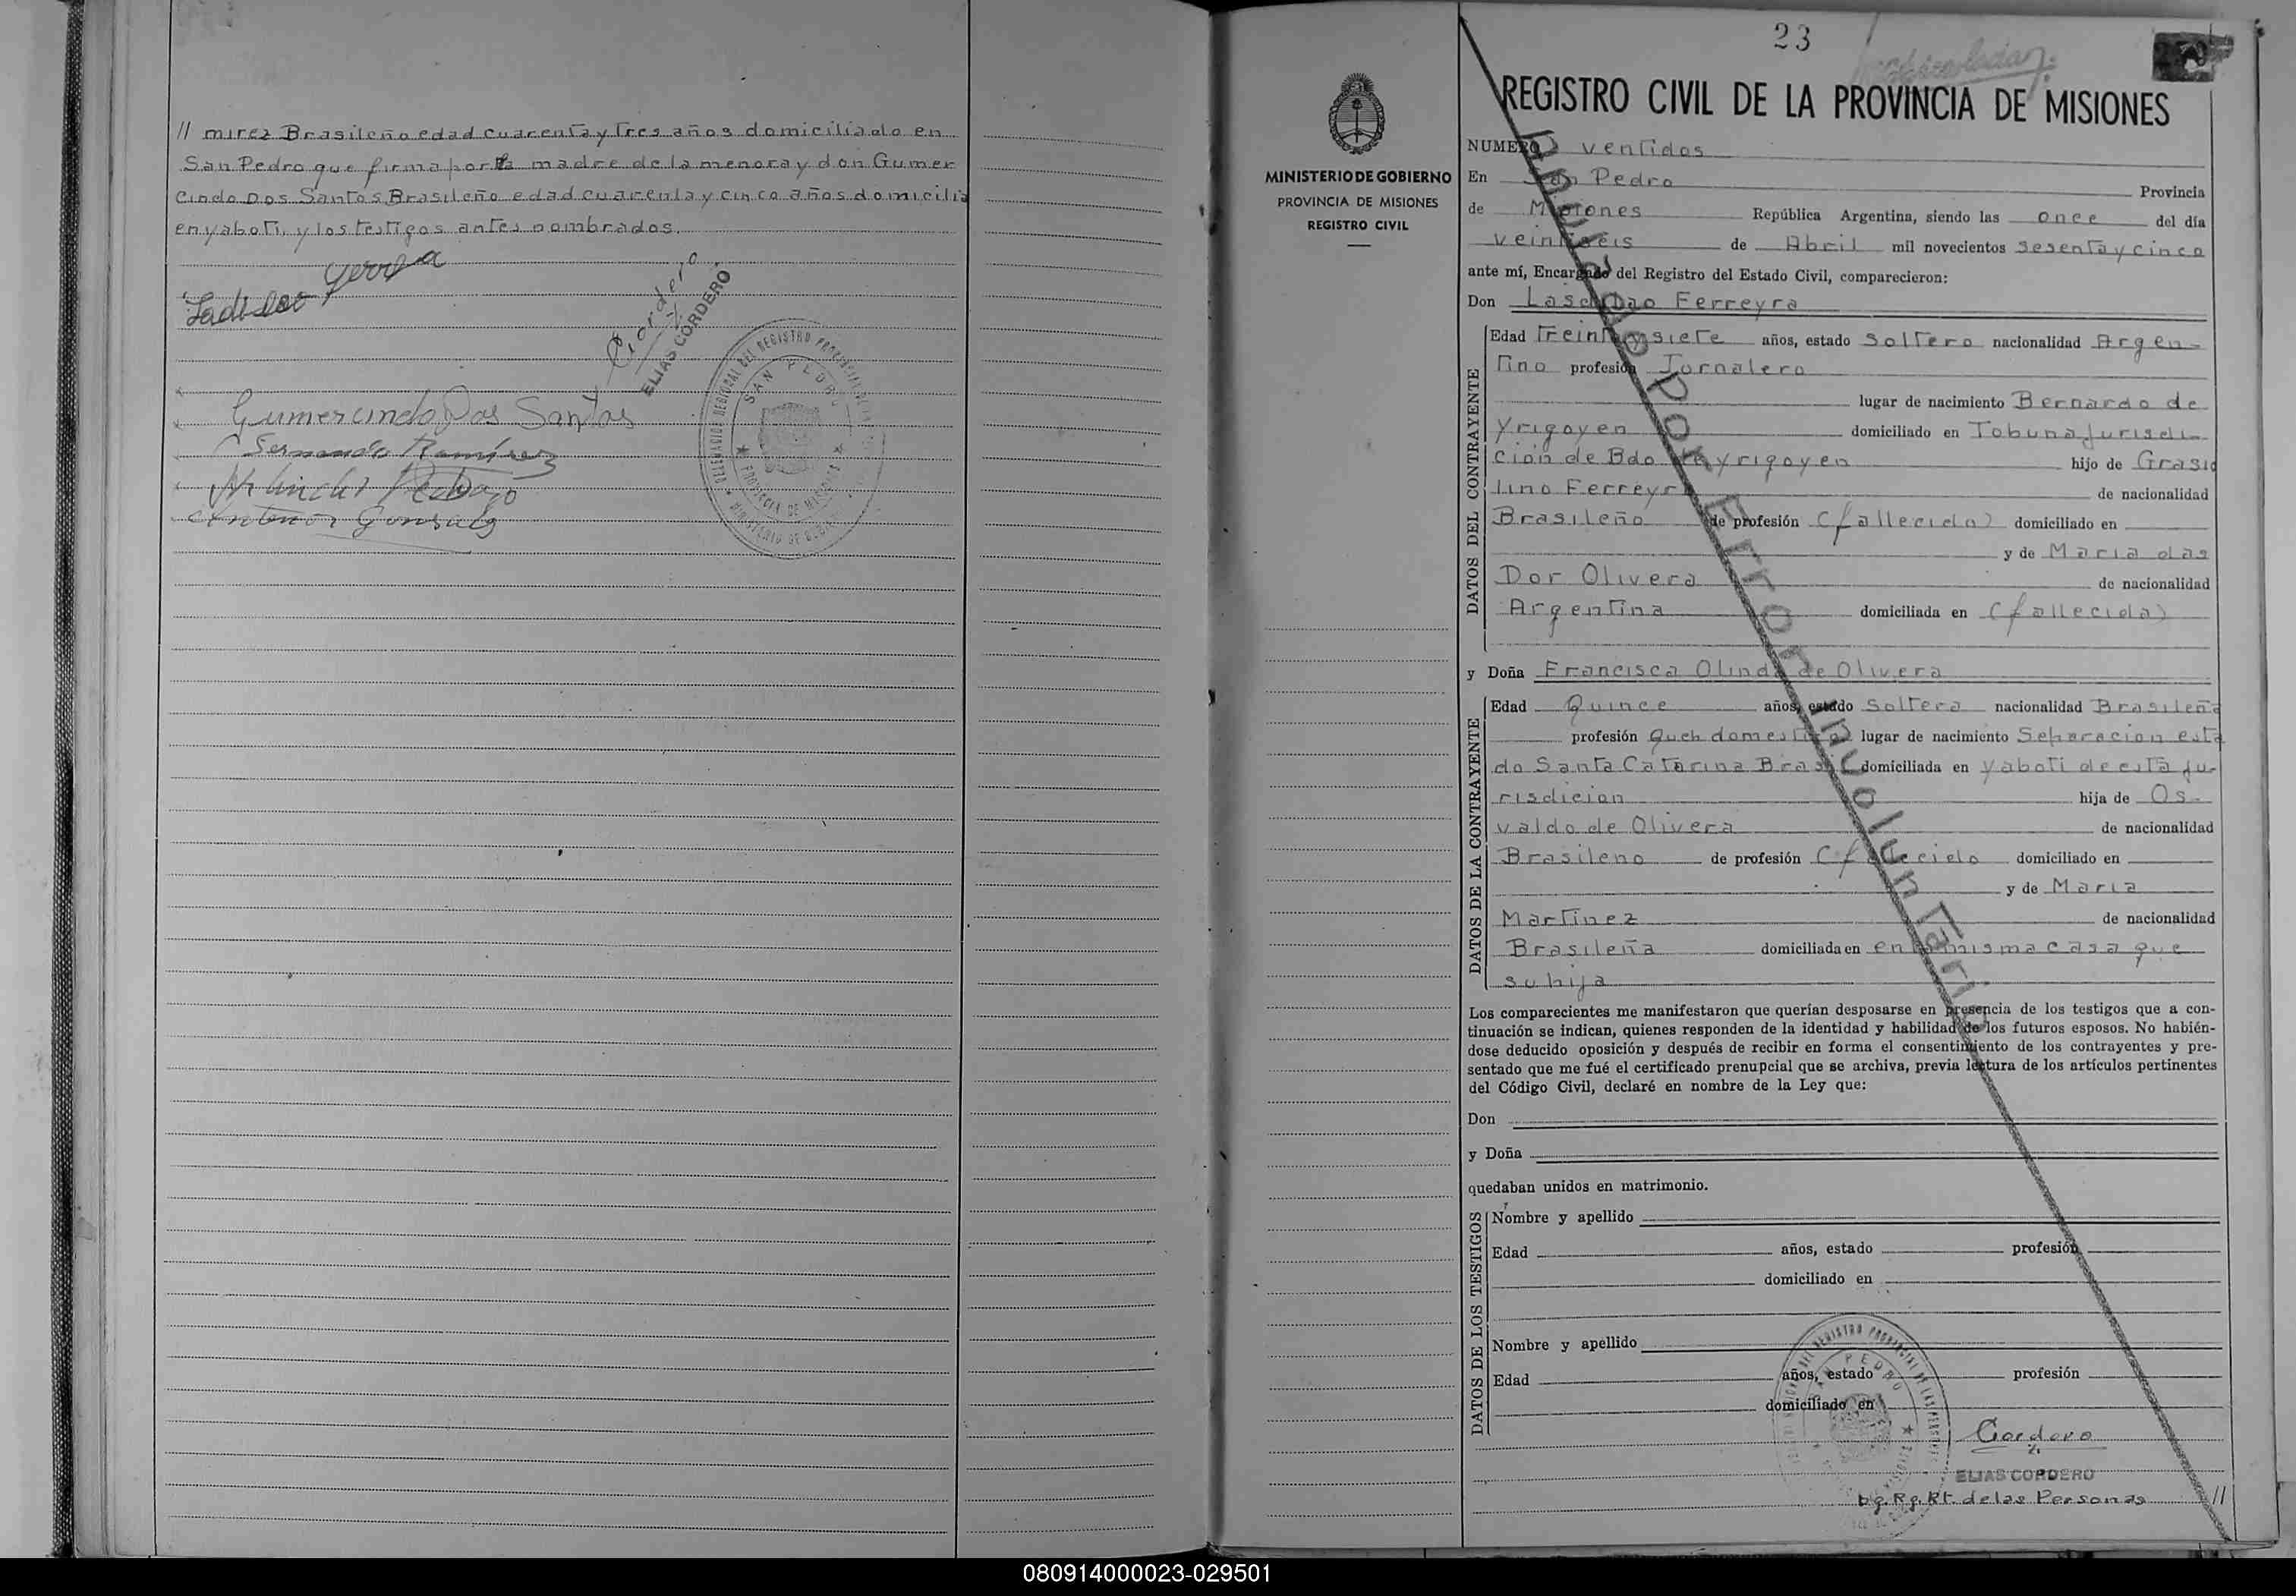 // mirez Brasileño edad cuarenta y tres años domiciliado en
San Pedro que firma por la madre de la menora y don Gumer
cindo Dos Santos Brasileño edad cuarenta y cinco años domicilia
en yaboti, y los testigos antes nombrados.
Cordero
ELIAS CORDERO
Gumercindo Dos Santos
Ramirez
SAN PEDRO
PROVINCIA DE MISIONES
MINISTERIO DE GOBIERNO
PROVINCIA DE MISIONES
REGISTRO CIVIL
23
REGISTRO CIVIL DE LA PROVINCIA DE MISIONES
NUMERO ventidos
En San Pedro Provincia
de Misiones República Argentina, siendo las once del día
veintiseis de Abril mil novecientos sesenta y cinco
ante mí, Encargado del Registro del Estado Civil, comparecieron:
Don Ferreyra
DATOS DEL CONTRAYENTE
Edad Treinta y siete años, estado Soltero nacionalidad Argen-
tino profesión Jornalero
lugar de nacimiento Bernardo de
Yrigoyen domiciliado en Tobuna Jurisdi-
ción de Bdo de yrigoyen hijo de Grasi
lino Ferreyra de nacionalidad
Brasileño de profesión (fallecido) domiciliado en
y de Maria das
Dor Olivera de nacionalidad
Argentina domiciliada en (fallecida)
y Doña Francisca Olinda de Olivera
DATOS DE LA CONTRAYENTE
Edad Quince años, estado Soltera nacionalidad Brasileña
profesión Queh domestico lugar de nacimiento Separacion esta
do Santa Catarina Brasil domiciliada en yaboti de esta ju-
risdicion hija de Os-
valdo de Olivera de nacionalidad
Brasileno de profesión (fallecido domiciliado en
y de Maria
Martinez de nacionalidad
Brasileña domiciliada en en la misma casa que
su hija
Los comparecientes me manifestaron que querían desposarse en presencia de los testigos que a con-
tinuación se indican, quienes responden de la identidad y habilidad de los futuros esposos. No habién-
dose deducido oposición y después de recibir en forma el consentimiento de los contrayentes y pre-
sentado que me fué el certificado prenupcial que se archiva, previa lectura de los artículos pertinentes
del Código Civil, declaré en nombre de la Ley que:
Don
y Doña
quedaban unidos en matrimonio.
DATOS DE LOS TESTIGOS
Nombre y apellido
Edad años, estado profesión
domiciliado en
Nombre y apellido
Edad años, estado profesión
domiciliado en
Cordero
ELIAS CORDERO
Dg. Rg. Rt. de las Personas //
Anulado Por Error Inuoluntario
SAN PEDRO
080914000023-029501